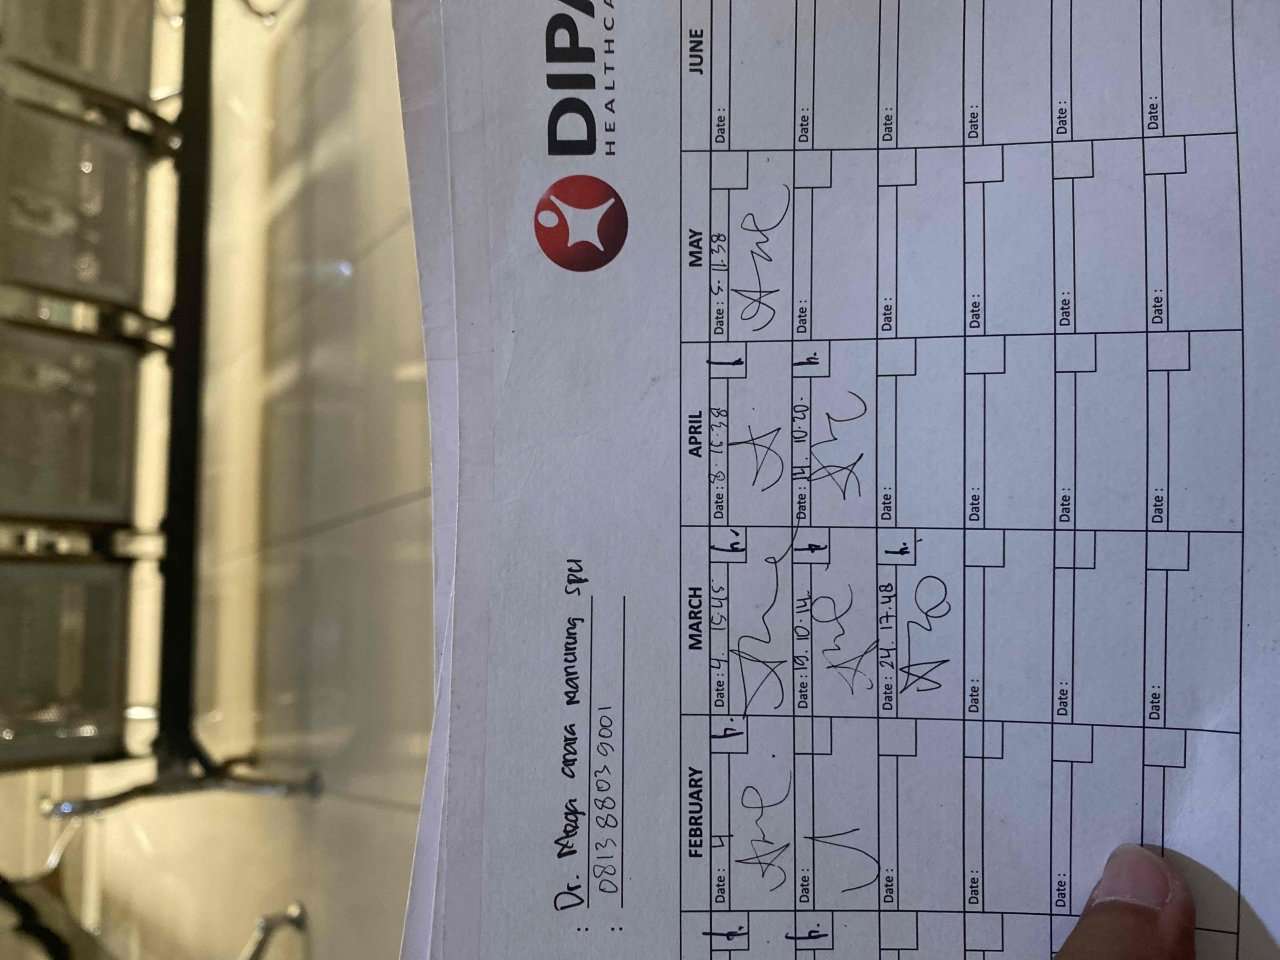 DIPA
HEALTHCA
: Dr. Mega anara manurung spu
: 0813 8803 9001
FEBRUARY MARCH APRIL MAY JUNE
Date : 4 h. Date : 4. 15.45 h. Date : 8. 15.38 h Date : 5. 11.38 Date :
Date : Date : 19. 10.14 h Date : 14. 10.20. h. Date : Date :
Date : Date : 24. 17.48 h. Date : Date : Date :
Date : Date : Date : Date : Date :
Date : Date : Date : Date : Date :
Date : Date : Date : Date :